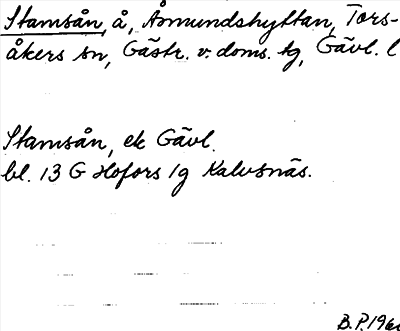 Stamsån, å, Åsmundshyttan, Tors-
åkers sn, Gästr. v. doms. tg, Gävl. l
Stamsån, ek Gävl.
bl. 13 G Hofors 1g Kalvsnäs.
B.P. 196